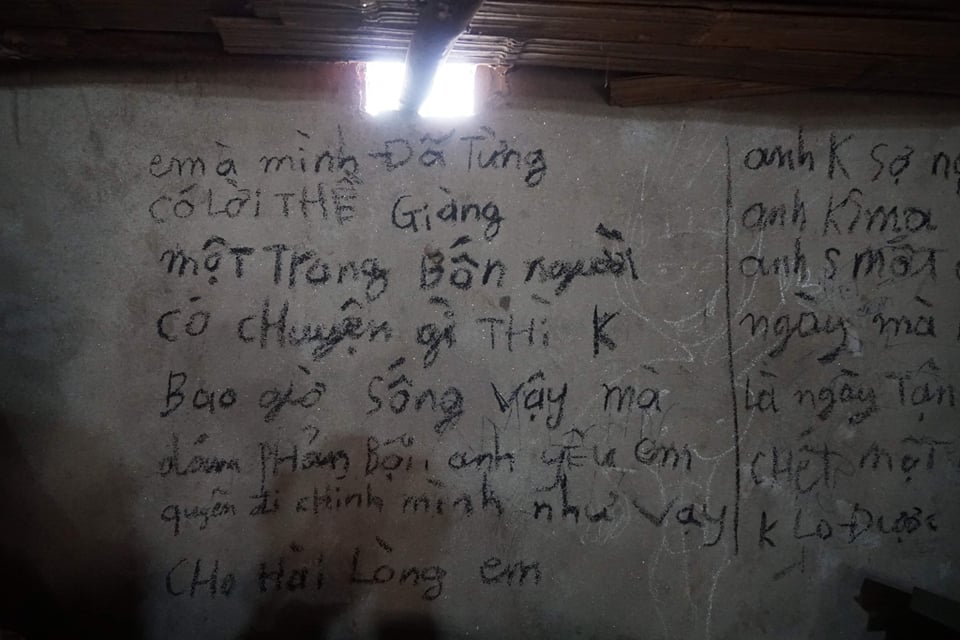 em à mình Đã Từng
có Lời THỀ Giàng
một Trong Bốn người
có cHuyện gì THì K
Bao giờ Sống Vậy mà
dám pHản Bội, anh yêu em
quyên đi cHinh mình như Vạy
CHo Hài Lòng em
anh K Sợ
anh Kìma
anh S mất
ngày mà
là ngày Tận
CHếT mộT
K Lo Được